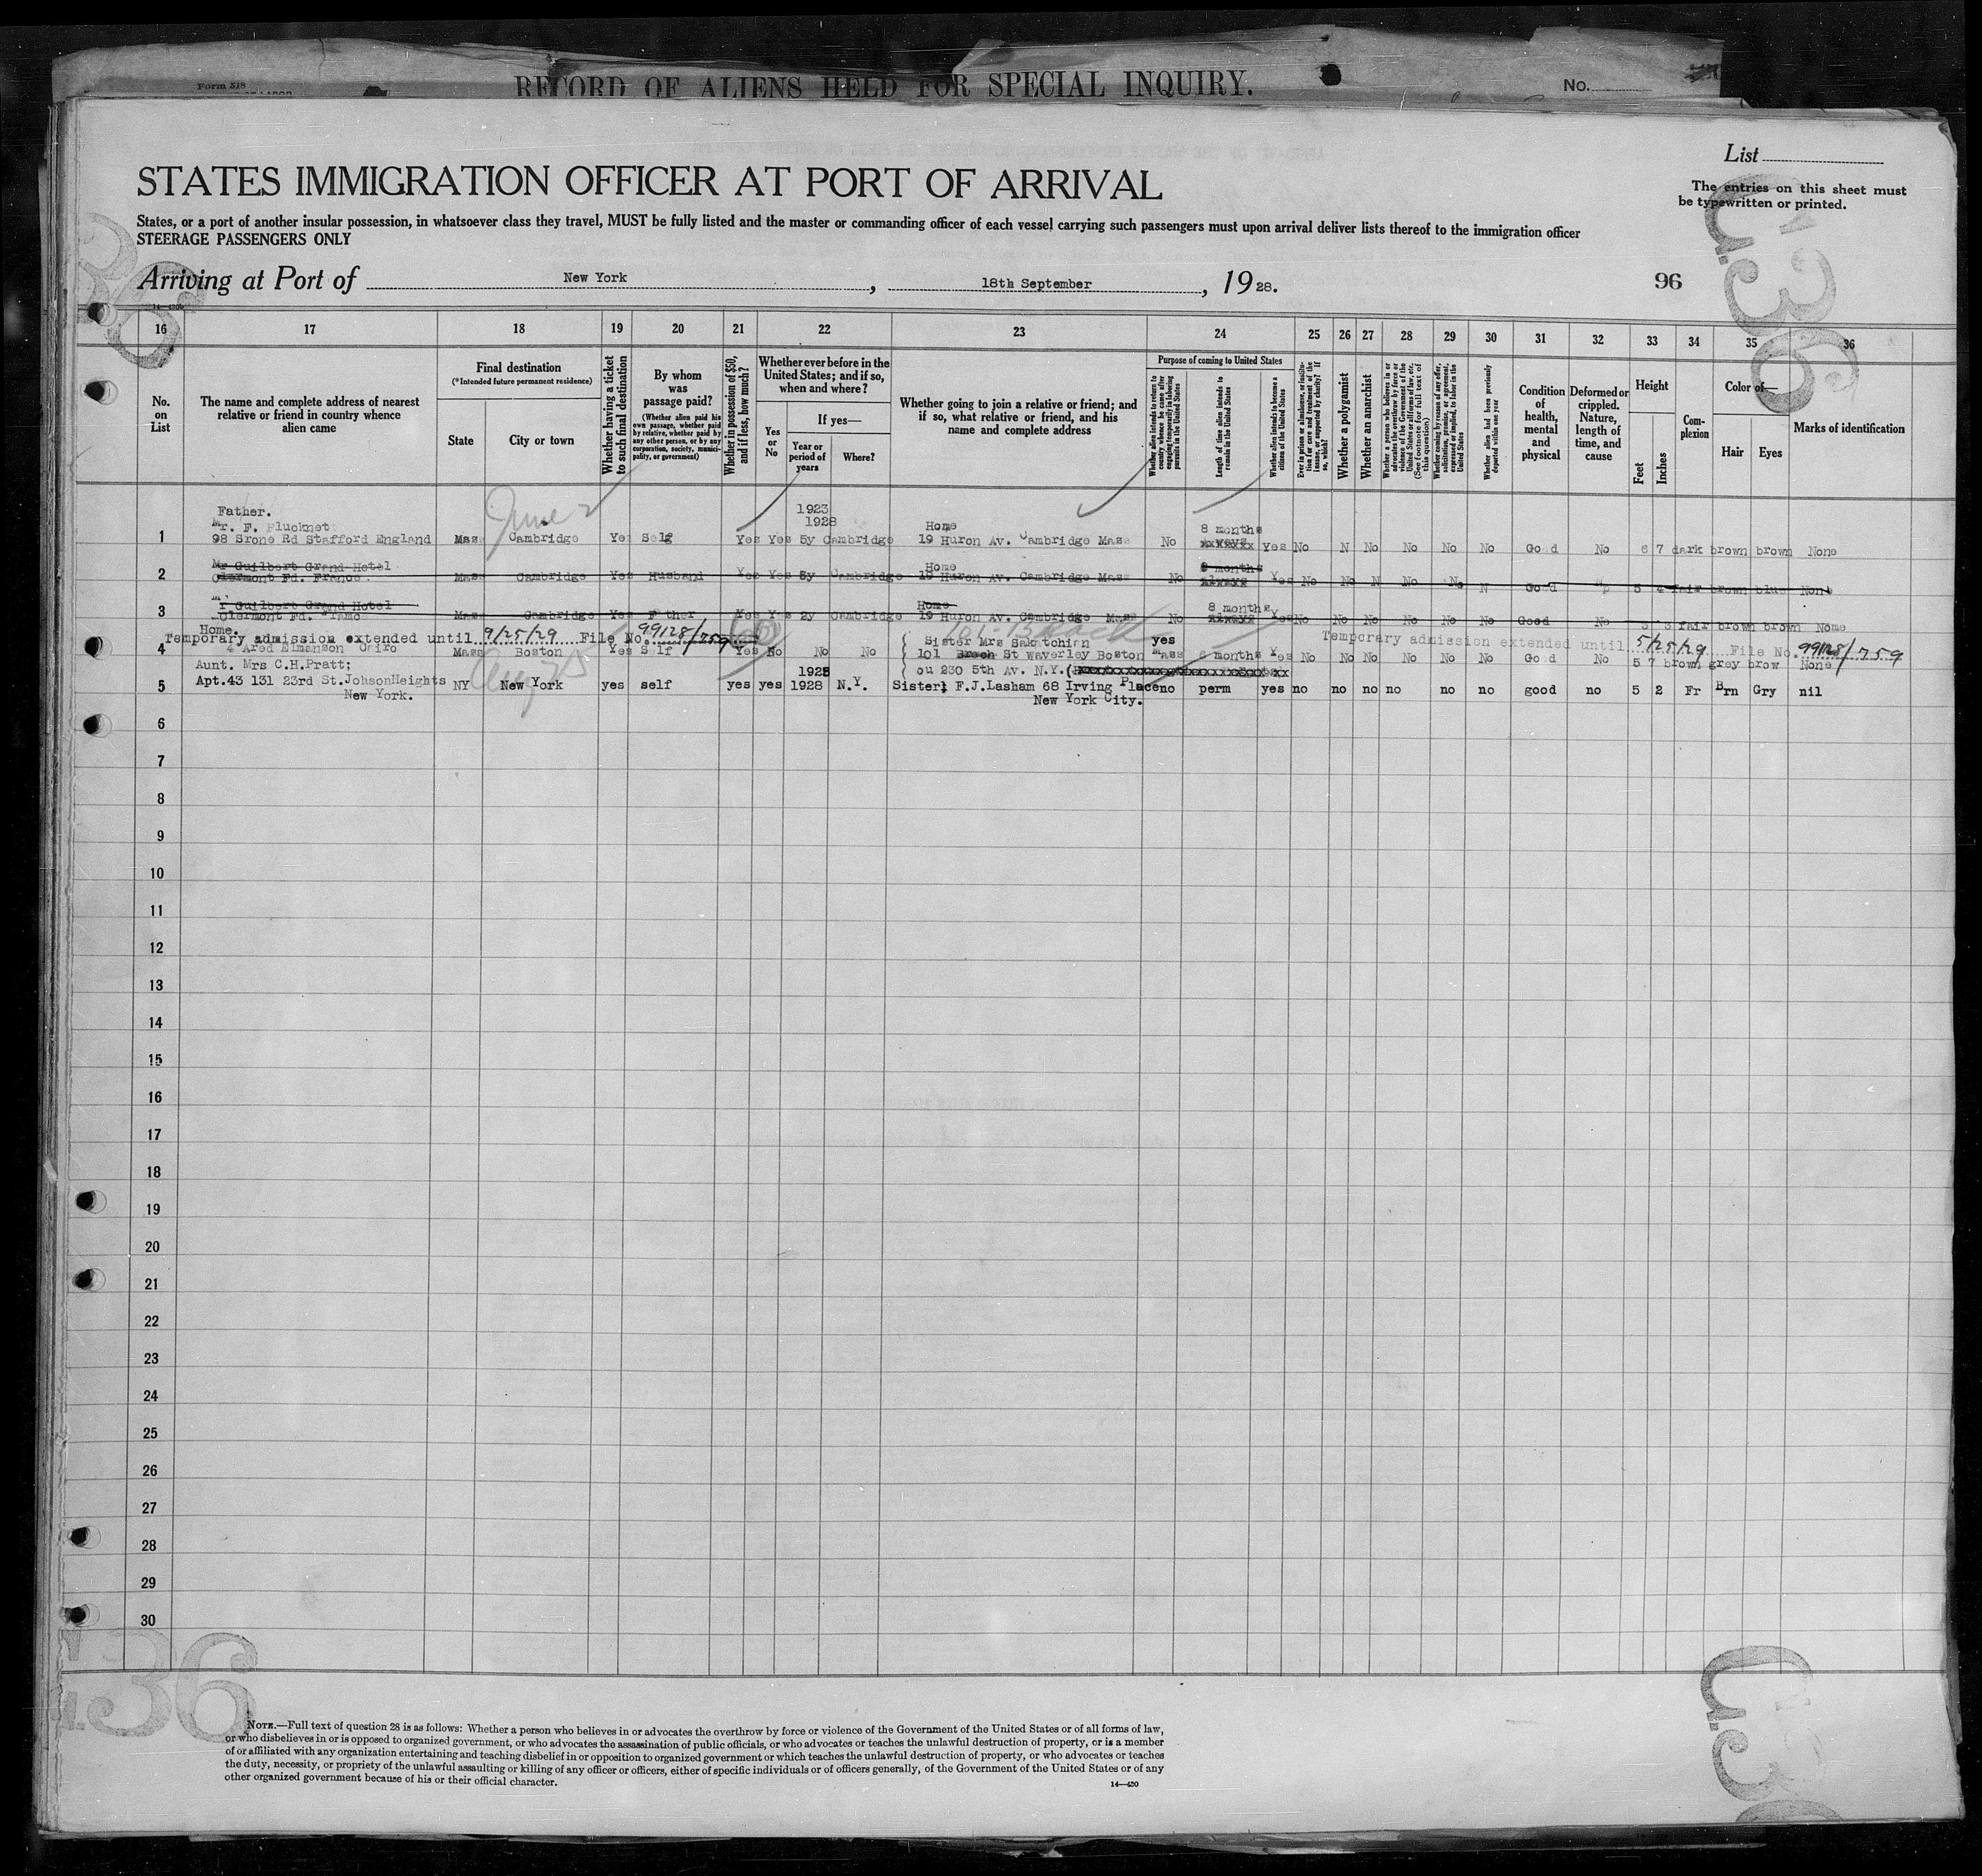 Form 518
RECORD OF ALIENS HELD FOR SPECIAL INQUIRY.
No.
List
STATES IMMIGRATION OFFICER AT PORT OF ARRIVAL
The entries on this sheet must
be typewritten or printed.
States, or a port of another insular possession, in whatsoever class they travel, MUST be fully listed and the master or commanding officer of each vessel carrying such passengers must upon arrival deliver lists thereof to the immigration officer
STEERAGE PASSENGERS ONLY
Arriving at Port of New York, 18th September, 1928.
96
14—430b
16 17 18 19 20 21 22 23 24 25 26 27 28 29 30 31 32 33 34 35 36
No. on List
The name and complete address of nearest relative or friend in country whence alien came
Final destination
(*Intended future permanent residence)
State
City or town
Whether having a ticket to such final destination
By whom was passage paid?
(Whether alien paid his own passage, whether paid by relative, whether paid by any other person, or by any corporation, society, municipality, or government)
Whether in possession of $50, and if less, how much?
Whether ever before in the United States; and if so, when and where?
Yes or No
If yes—
Year or period of years
Where?
Whether going to join a relative or friend; and if so, what relative or friend, and his name and complete address
Purpose of coming to United States
Whether alien intends to return to country whence he came after engaging temporarily in laboring pursuits in the United States
Length of time alien intends to remain in the United States
Whether alien intends to become a citizen of the United States
Ever in prison or almshouse, or institution for care and treatment of the insane, or supported by charity? If so, which?
Whether a polygamist
Whether an anarchist
Whether a person who believes in or advocates the overthrow by force or violence of the Government of the United States or all forms of law, etc. (See footnote for full text of this question)
Whether coming by reason of any offer, solicitation, promise, or agreement, expressed or implied, to labor in the United States
Whether alien had been previously deported within one year
Condition of health, mental and physical
Deformed or crippled. Nature, length of time, and cause
Height
Feet
Inches
Complexion
Color of—
Hair
Eyes
Marks of identification
June 2
Father.
Mr. F. Plucknet
1923
1928
Home
8 months
1 98 Srone Rd Stafford England Mas Cambridge Ye Self Yes Yes 5y Cambridge 19 Huron Av. Cambridge Mass No always Yes No N No No No No Good No 6 7 dark brown brown None
Mr Guilbert Grand Hotel
Home
8 months
2 Clermont Fd. France Mass Cambridge Yes Husband Yes Yes 5y Cambridge 19 Huron Av. Cambridge Mass No always Yes No No N No No N Good 5 4 fair brown blue None
Guilbert Grand Hotel
Home
8 months
3 Clermont Fd. Mass Cambridge Yes Father Yes Yes 2y Cambridge 19 Huron Av. Cambridge Mass No always Yes No No No No No No Good No 3 3 fair brown brown None
Home.
Temporary admission extended until 9/25/29 File No. 99128/759
Sister Mrs Sakatchian
yes
Temporary admission extended until 5/25/29 File No. 99128/759
4 Mass Boston Yes Self Yes No No No 101 St Waverley Boston Mass 6 months Yes No No No No No No Good No 5 7 brown grey brow None
ou 230 5th Av. N.Y.
Aunt. Mrs C.H.Pratt;
Aug 25
1925
5 Apt.43 131 23rd St.JohsonHeights NY New York yes self yes yes 1928 N.Y. Sister; F.J.Lasham 68 Irving Place no perm yes no no no no no no good no 5 2 Fr Brn Gry nil
New York.
New York City.
6
7
8
9
10
11
12
13
14
15
16
17
18
19
20
21
22
23
24
25
26
27
28
29
30
136
NOTE.—Full text of question 28 is as follows: Whether a person who believes in or advocates the overthrow by force or violence of the Government of the United States or of all forms of law,
or who disbelieves in or is opposed to organized government, or who advocates the assassination of public officials, or who advocates or teaches the unlawful destruction of property, or is a member
of or affiliated with any organization entertaining and teaching disbelief in or opposition to organized government or which teaches the unlawful destruction of property, or who advocates or teaches
the duty, necessity, or propriety of the unlawful assaulting or killing of any officer or officers, either of specific individuals or of officers generally, of the Government of the United States or of any
other organized government because of his or their official character.
14—430